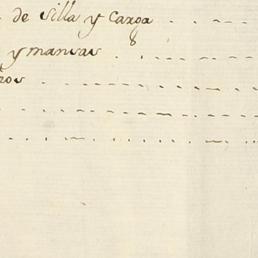 de Silla y Carga
y mansas 8
ños